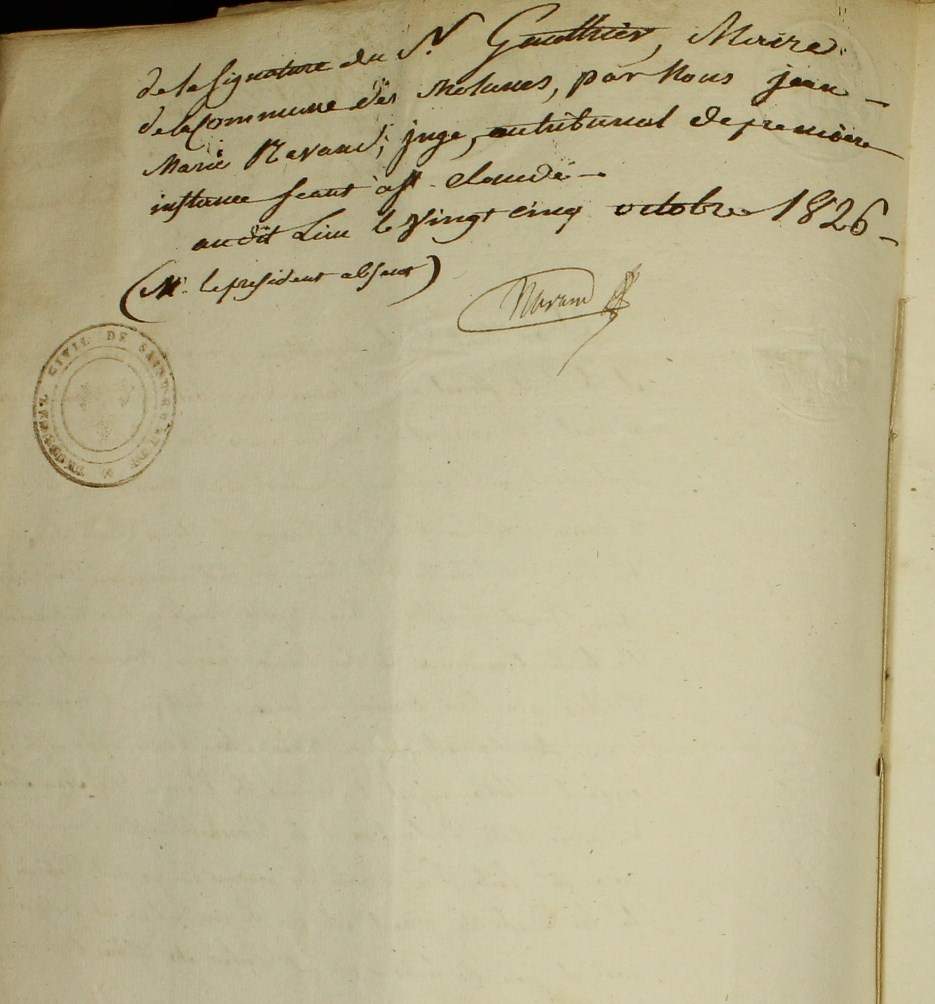 de la signature du Sr. Gauthier, Maire
de la Commune des Molunes, par Nous jean
Marie Navand, juge, au tribunal de première
instance séant à St. Claude
audit Lieu le Vingt cinq octobre 1826
(Mr. le président absent)
TRIBUNAL CIVIL DE SAINT-CLAUDE